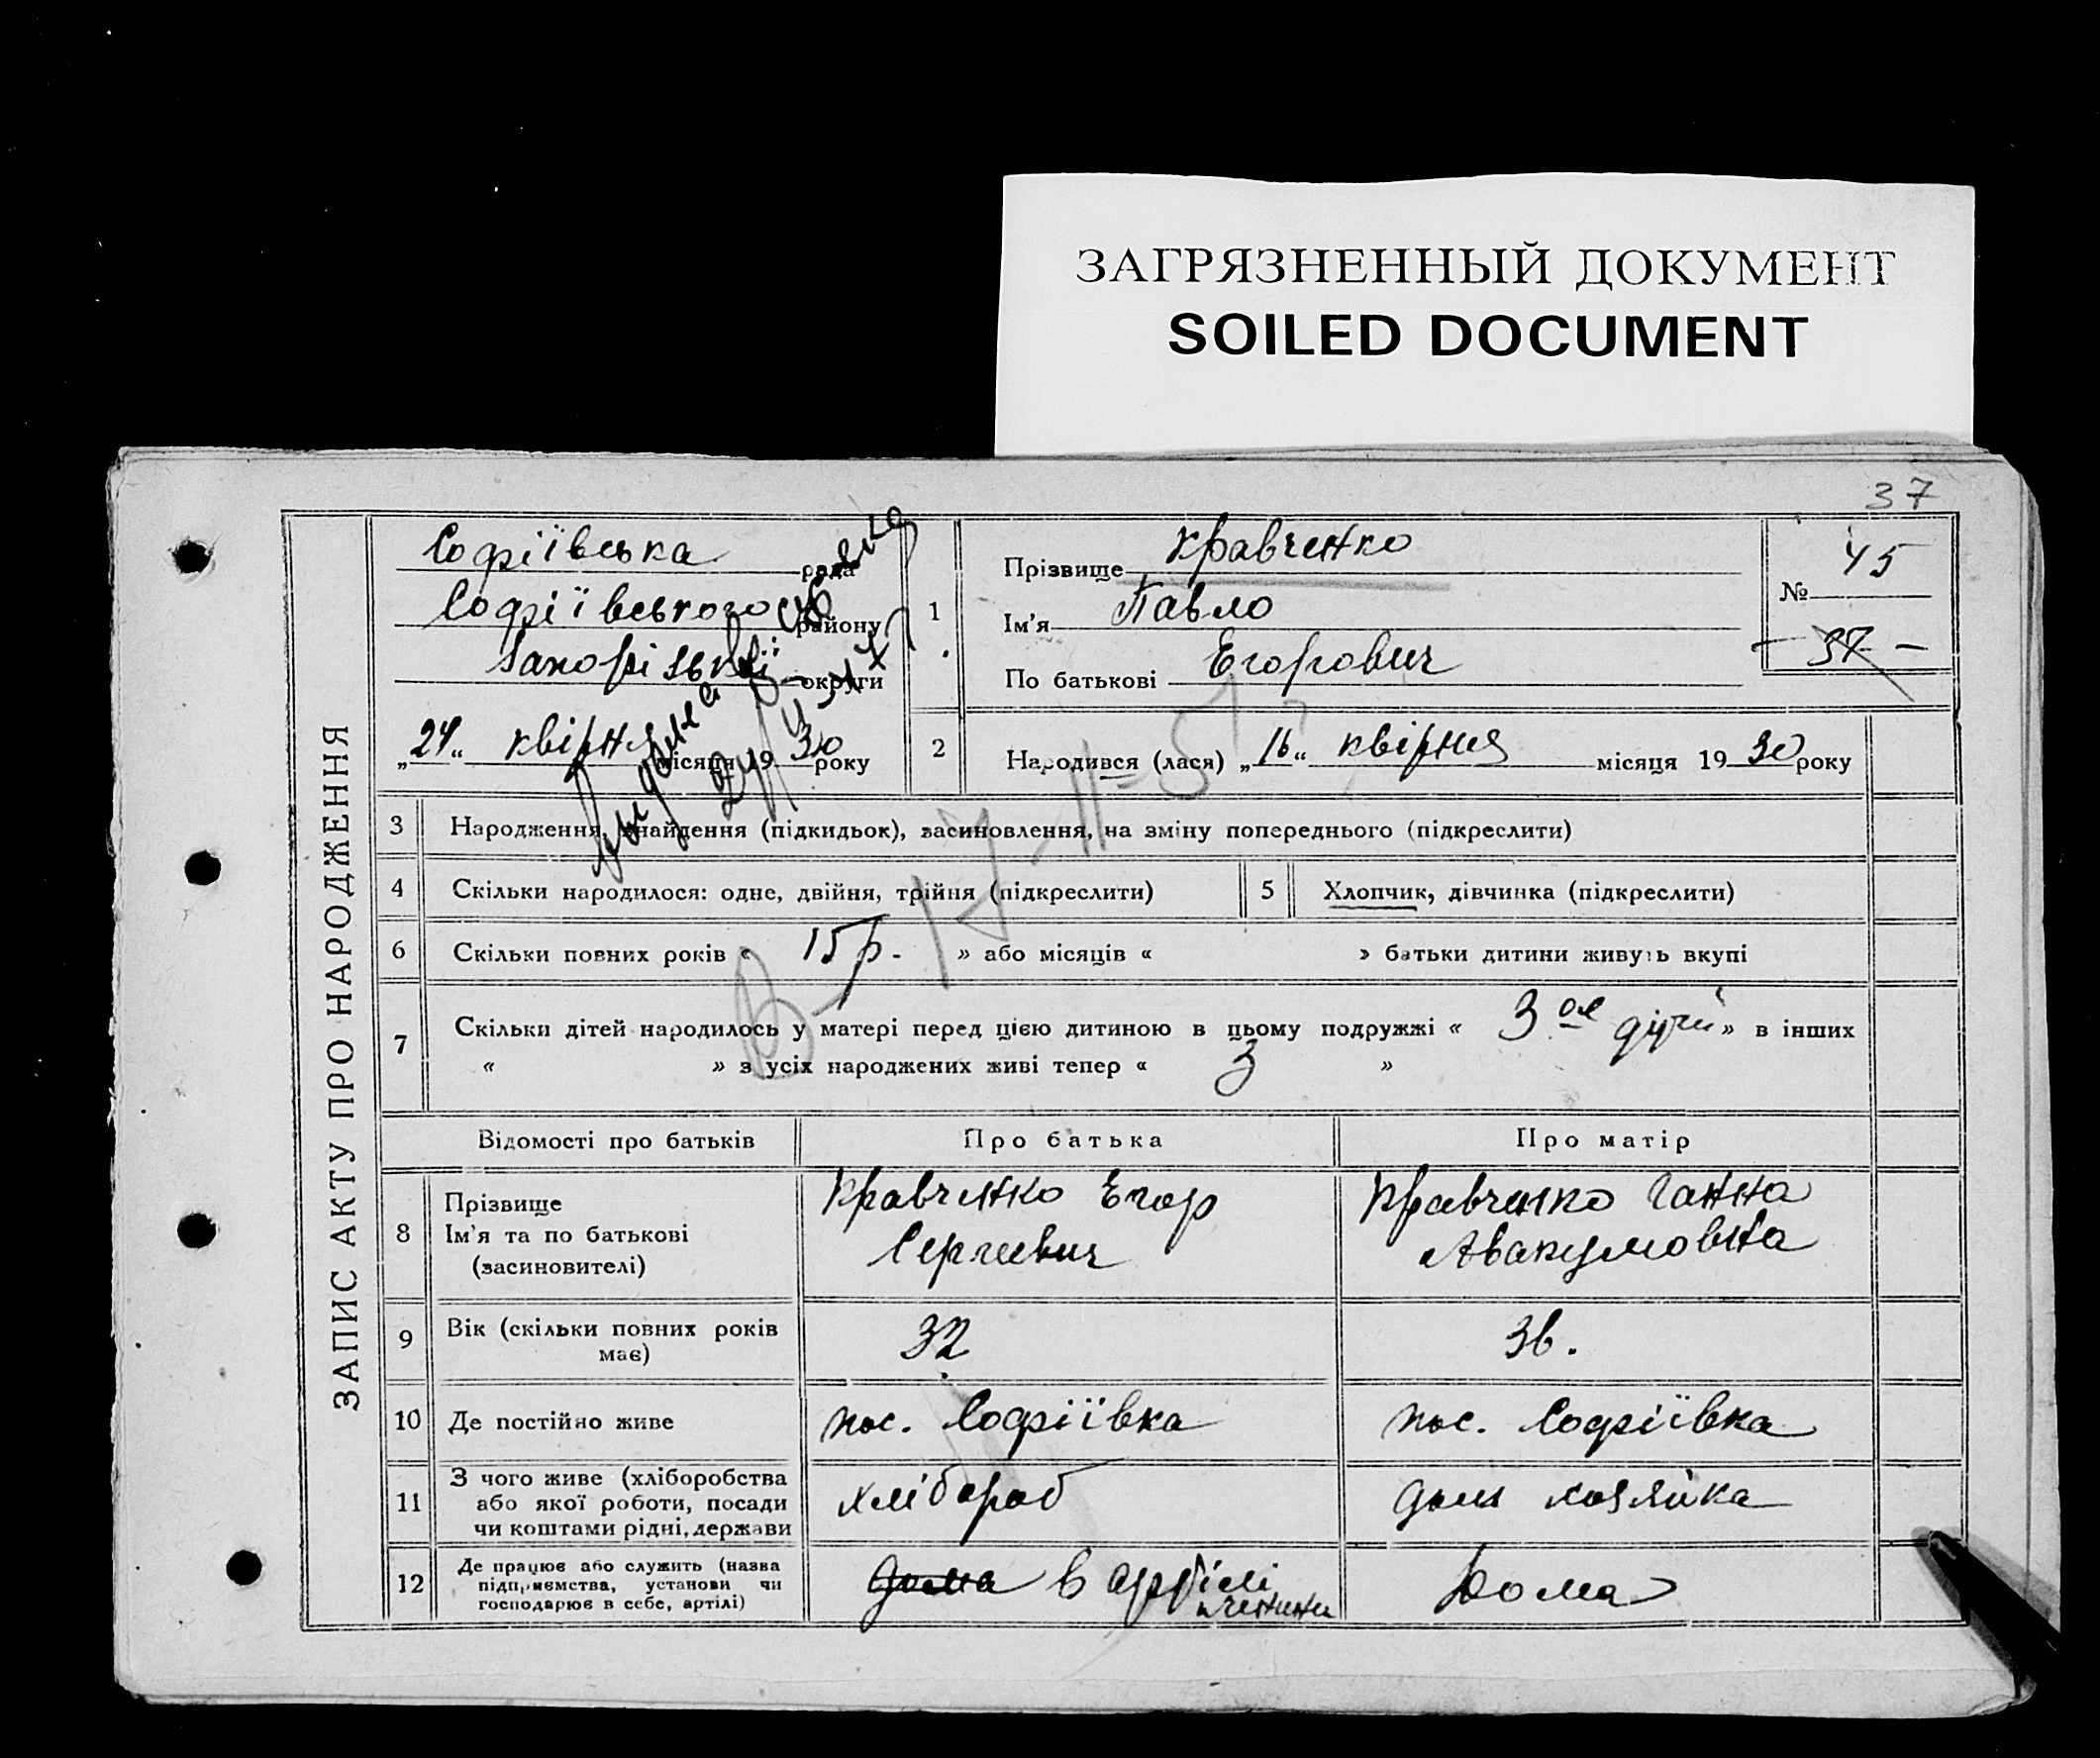 ЗАГРЯЗНЕННЫЙ ДОКУМЕНТ
SOILED DOCUMENT
37
ЗАПИС АКТУ ПРО НАРОДЖЕННЯ
Софіївська рада
Софіївського району
Запорізької округи
„24“ квірня місяця 1930 року
1
Прізвище Кравченко
Ім'я Павло
По батькові Егорович
№ 45
— 37 —
2
Народився (лася) „16“ квірня місяця 1930 року
3 Народження, знайдення (підкидьок), засиновлення, на зміну попереднього (підкреслити)
4 Скільки народилося: одне, двійня, трійня (підкреслити)
5 Хлопчик, дівчинка (підкреслити)
6 Скільки повних років « 15 р. » або місяців « » батьки дитини живуть вкупі
7 Скільки дітей народилось у матері перед цією дитиною в цьому подружжі « 3 ое » в інших
« » з усіх народжених живі тепер « 3 »
Відомості про батьків Про батька Про матір
8
Прізвище
Ім'я та по батькові
(засиновителі)
Кравченко Егор
Сергиевич
Кравченко Ганна
Авакумовна
9
Вік (скільки повних років
має)
32
36.
10 Де постійно живе
пос. Софіївка
пос. Софіївка
11
З чого живе (хліборобства
або якої роботи, посади
чи коштами рідні, держави
хлібороб
дом хозяйка
12
Де працює або служить (назва
підприємства, установи чи
господарює в себе, артілі)
дома в артілі
Дома